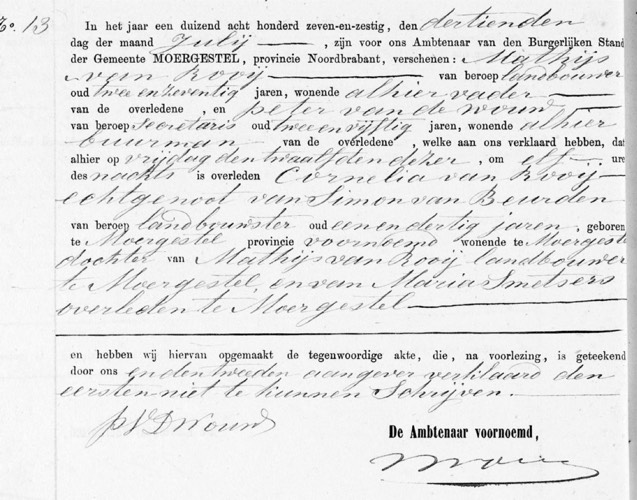 No. 13
In het jaar een duizend acht honderd zeven-en-zestig, den dertienden
dag der maand Julij, zijn voor ons Ambtenaar van den Burgerlijken Stand
der Gemeente MOERGESTEL, provincie Noordbrabant, verschenen: Mathijs
van Rooij van beroep landbouwer
oud twee en zeventig jaren, wonende alhier vader
van de overledene, en peter van de woud
van beroep secretaris oud twee en vijftig jaren, wonende alhier
buurman van de overledene, welke aan ons verklaard hebben, dat
alhier op vrijdag den twaalfden dezer, om elf ure
des nachts is overleden Cornelia van Rooij
echtgenoot van Simon van Beurden
van beroep landbouwster oud een en dertig jaren, geboren
te Moergestel provincie voornoemd wonende te Moergestel
dochter van Mathijs van Rooij landbouwer
te Moergestel, en van Maria Smetsers
overleden te Moergestel
en hebben wij hiervan opgemaakt de tegenwoordige akte, die, na voorlezing, is geteekend
door ons en den tweeden aangever verklaard den
eersten niet te kunnen Schrijven.
PVDWoud
De Ambtenaar voornoemd,